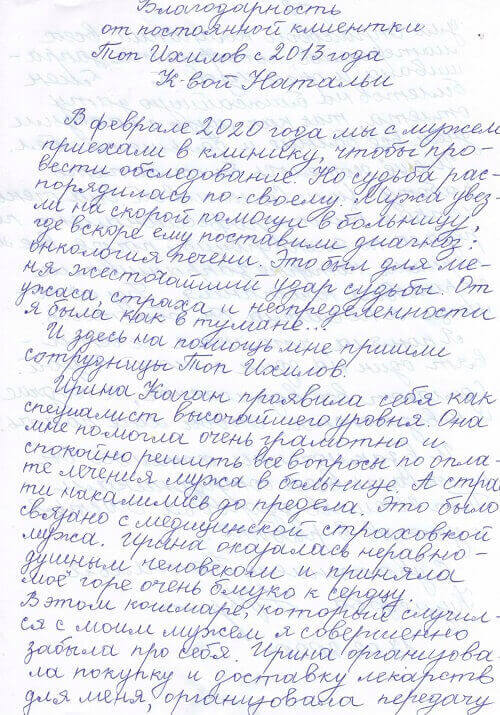 Благодарность
от постоянной клиентки
Топ Ихилов с 2013 года
К-вой Натальи
В феврале 2020 года мы с мужем
приехали в клинику, чтобы про-
вести обследование. Но судьба рас-
порядилась по-своему. Мужа увез-
ли на скорой помощи в больницу,
где вскоре ему поставили диагноз:
онкология печени. Это был для ме-
ня жесточайший удар судьбы. От
ужаса, страха и неопределенности
я была как в тумане...
И здесь на помощь мне пришли
сотрудницы Топ Ихилов.
Ирина Каган проявила себя как
специалист высочайшего уровня. Она
мне помогла очень грамотно и
спокойно решить все вопросы по опла-
те лечения мужа в больнице. А стра
ти накалились до предела. Это было
связано с медицинской страховкой
мужа. Ирина оказалась неравно-
душным человеком и приняла
моё горе очень близко к сердцу.
В этом кошмаре, который случил-
ся с моим мужем я совершенно
забыла про себя. Ирина организова-
ла покупку и доставку лекарств
для меня, организовала передачу